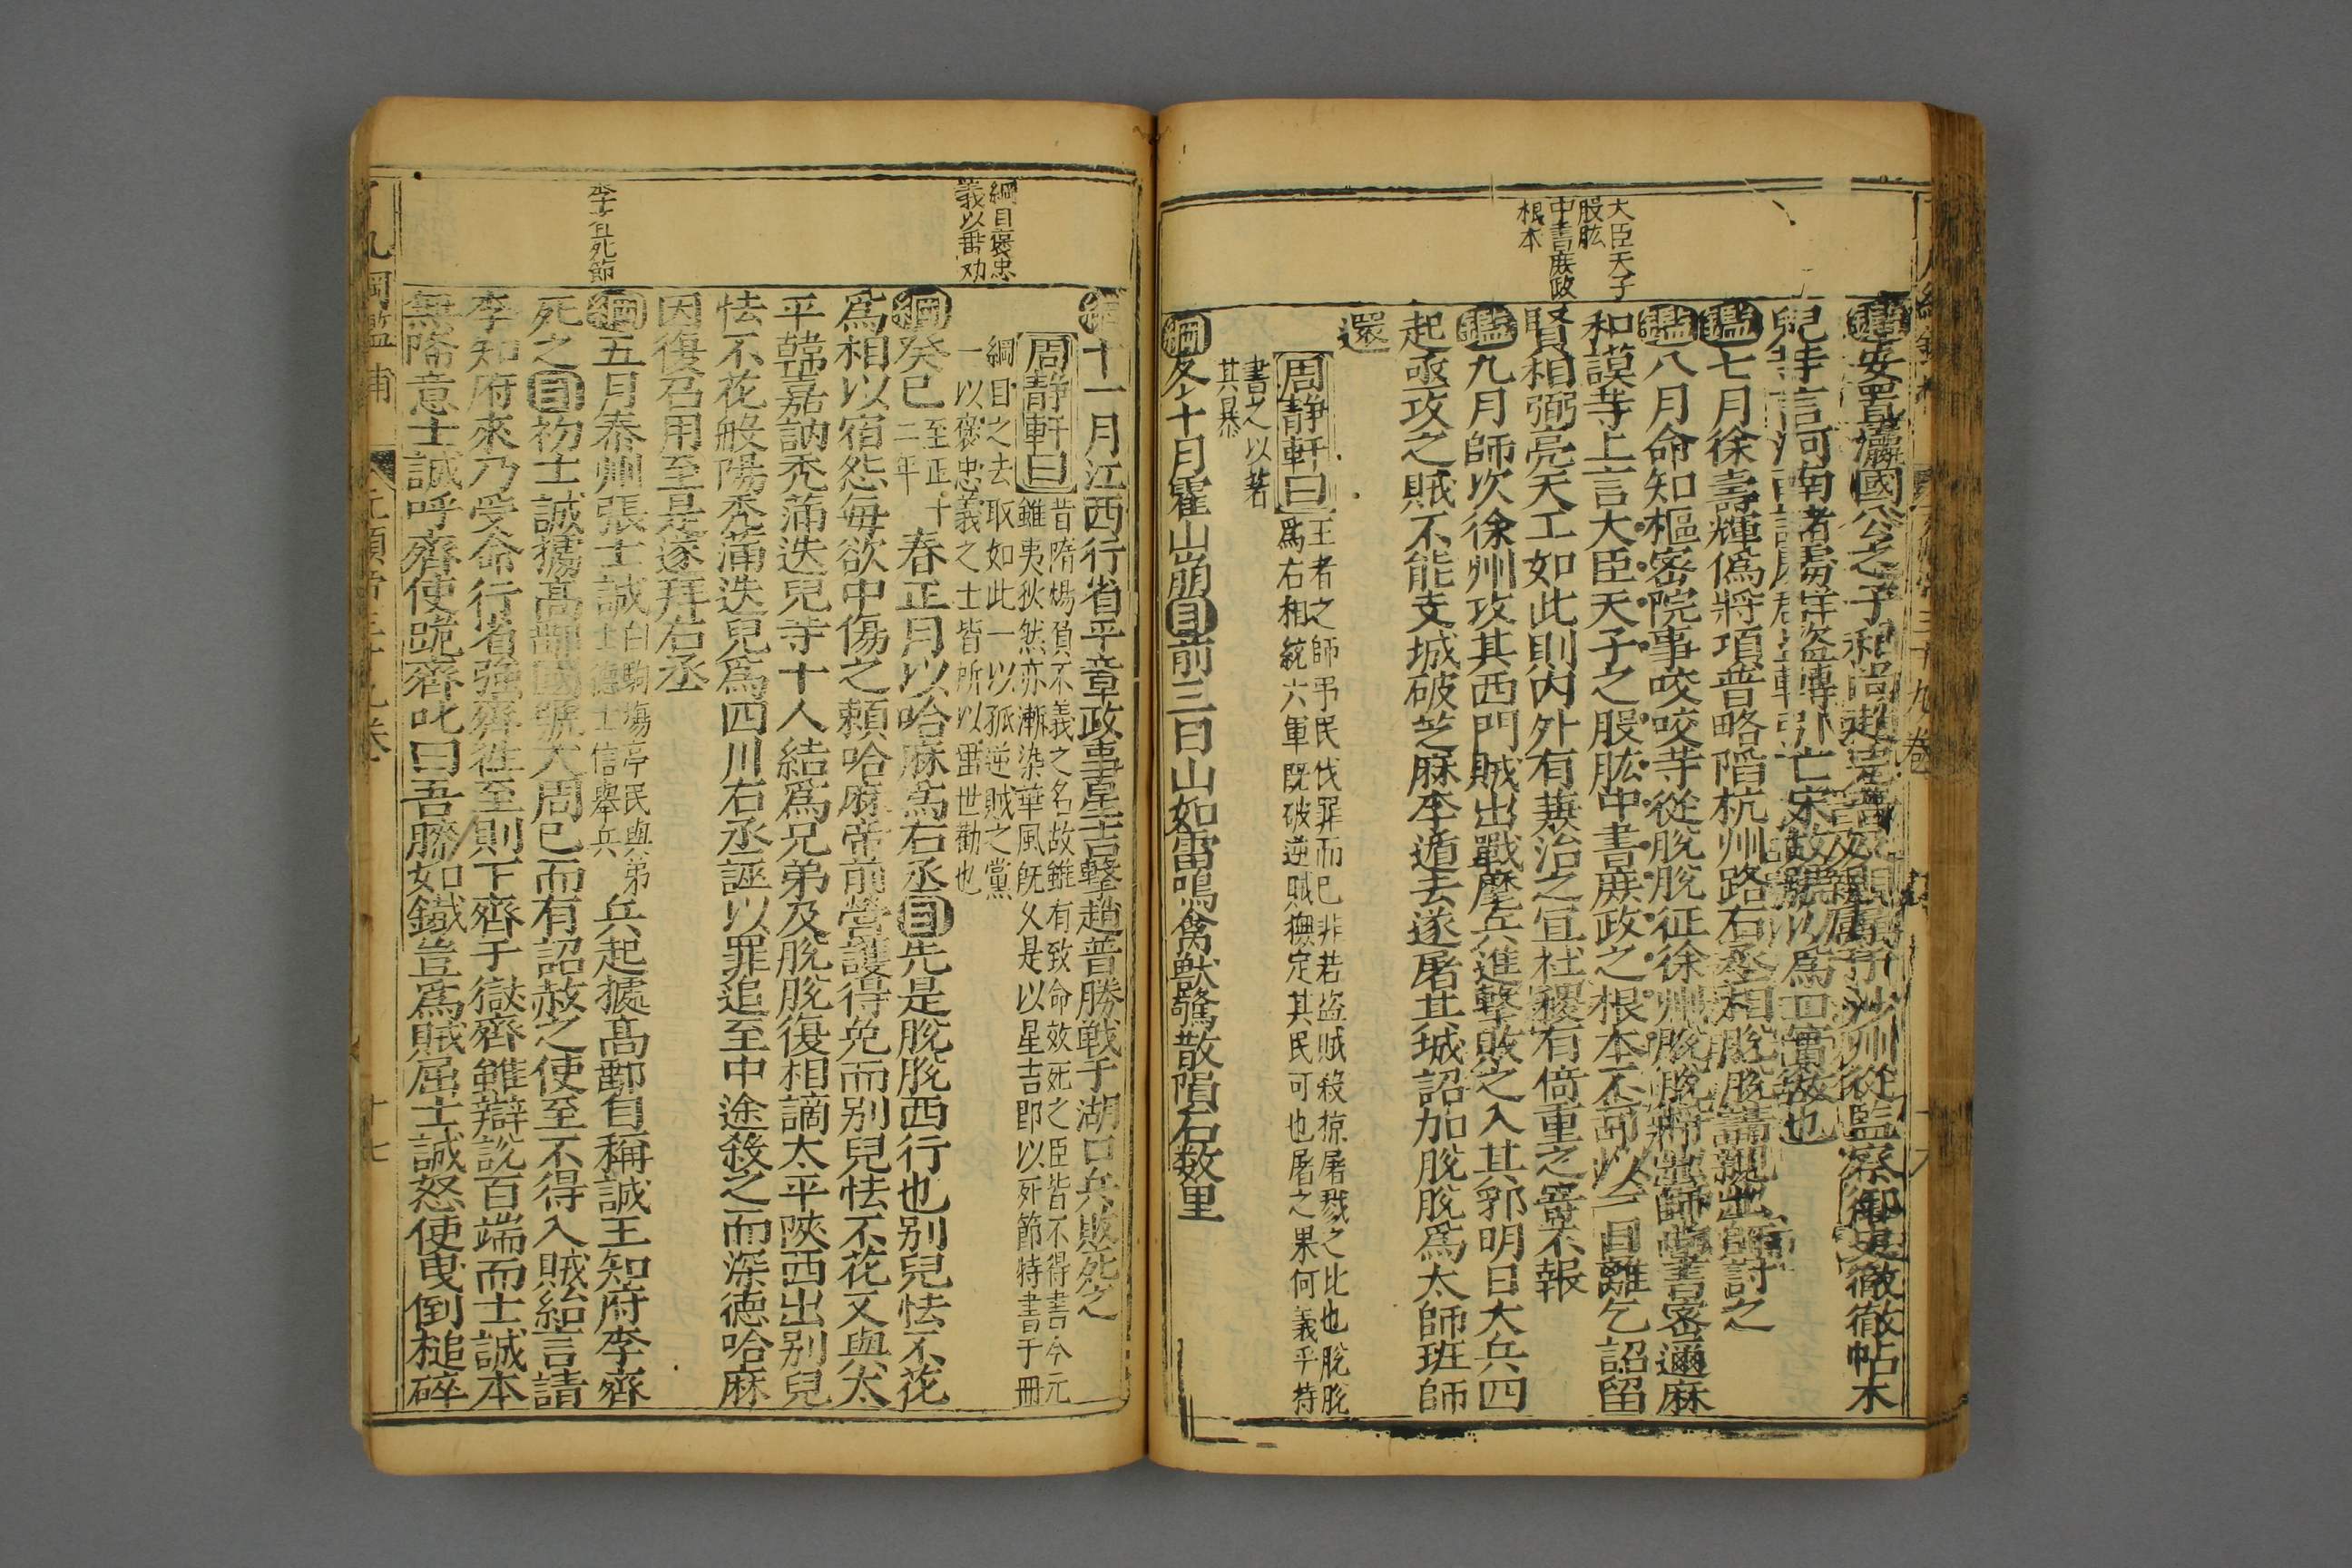 大臣天子
股肱
中書庶政
根本
鑑安置瀛國公之子和尚趙完普及親屬于沙州從監察御史徹徹帖木
兒等言河南諸處群盜輒引亡宋故號以爲口實故也
鑑七月徐壽輝僞將項普略陷杭州路右丞相脫脫請親出師討之
鑑八月命知樞密院事咬咬等從脫脫征徐州脫脫將出師尚書密邇麻
和謨等上言大臣天子之股肱中書庶政之根本不可以一日離乞詔留
賢相弼亮天工如此則內外有兼治之宜社稷有倚重之寄不報
鑑九月師次徐州攻其西門賊出戰麾兵進擊敗之入其郛明日大兵四
起亟攻之賊不能支城破芝麻李遁去遂屠其城詔加脫脫爲太師班師
還
周靜軒曰王者之師弔民伐罪而已非若盜賊殺掠屠戮之比也脫脫
爲右相統六軍既破逆賊撫定其民可也屠之果何義乎特
書之以著
其暴
綱冬十月霍山崩目前三日山如雷鳴禽獸驚散隕石数里
綱目褒忠
義以畨劝
李齊死節
綱十一月江西行省平章政事星吉擊趙普勝戰于湖口兵敗死之
周靜軒曰昔隋楊負不義之名故雖有致命效死之臣皆不得書今元
雖夷狄然亦漸染華風既久是以星吉即以死節特書于冊
綱目之去取如此一以孤逆賊之黨
一以褒忠義之士皆所以畨世勸也
綱癸巳至正十
二年春正月以哈麻爲右丞目先是脫脫西行也别兒怯不花
爲相以宿怨每欲中傷之賴哈麻帝前營護得免而别兒怯不花又與太
平韓嘉訥禿滿迭兒等十人結爲兄弟及脫脫復相謫太平陝西出别兒
怯不花般陽禿滿迭兒爲四川右丞誣以罪追至中途殺之而深德哈麻
因復召用至是遂拜右丞
綱五月泰州張士誠白駒塲亭民與弟
士德士信舉兵兵起據高郵自稱誠王知府李齊
死之目初士誠據高郵國號大周已而有詔赦之使至不得入賊紿言請
李知府來乃受命行省強齊往至則下齊于獄齊雖辯說百端而士誠本
無降意士誠呼齊使跪齊叱曰吾膝如鐵豈爲賊屈士誠怒使曳倒槌碎
十七